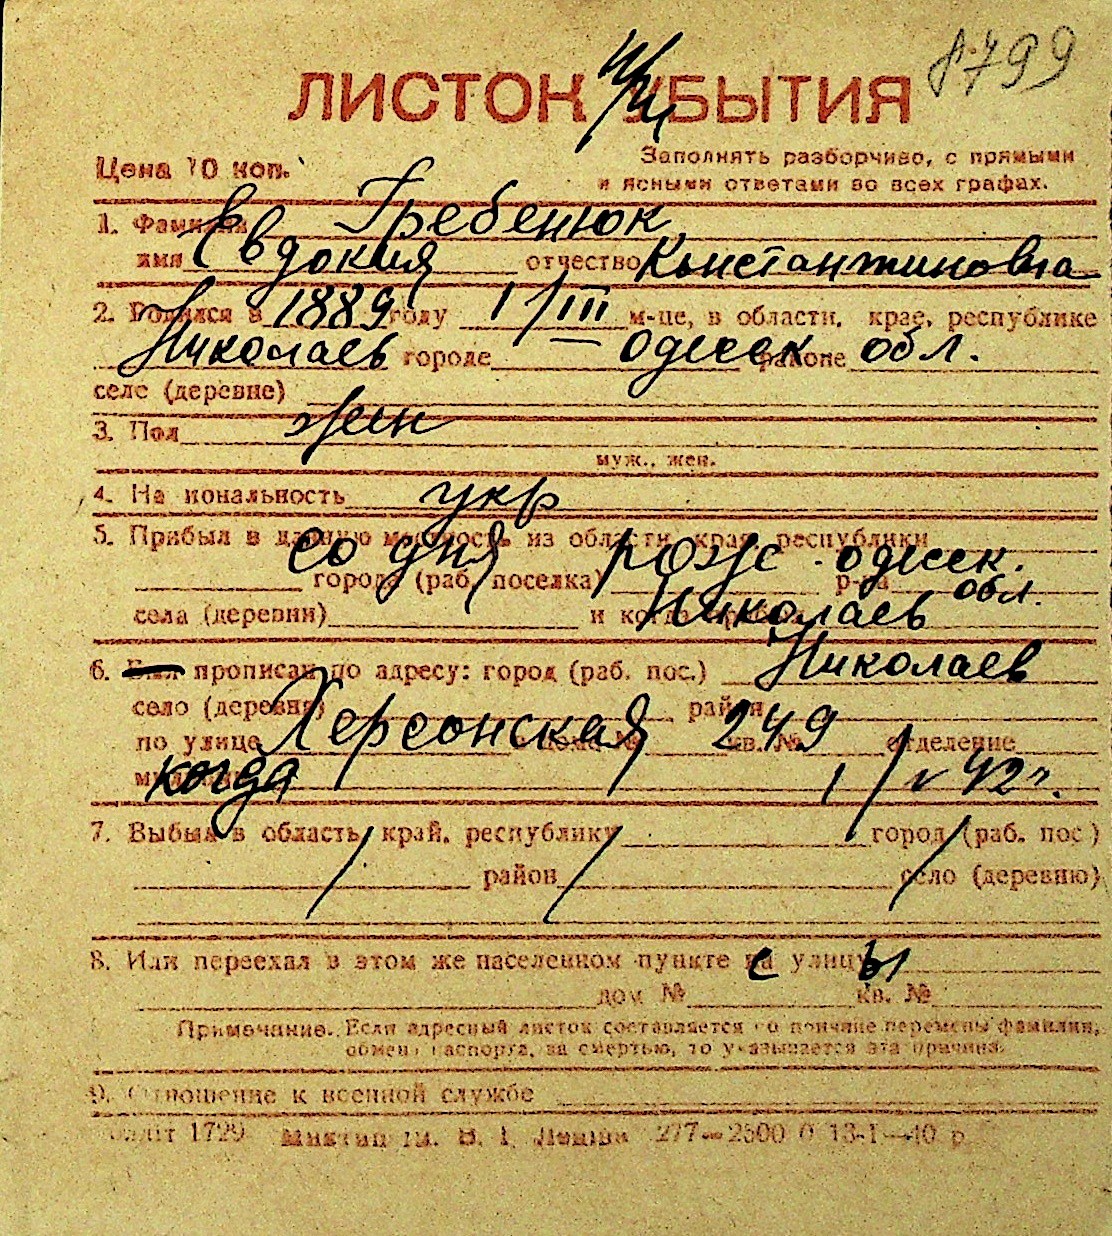 8799
ЛИСТОК УБЫТИЯ
Цена 10 коп.
Заполнять разборчиво, с прямыми
и ясными ответами во всех графах.
1. Фамилия Гребенюк
имя Евдокия отчество Константиновна
2. Родился в 1889 году 1/III м-це, в области, крае, республике
Николаев городе Одесск. районе обл.
селе (деревне)
3. Пол жен
муж., жен.
4. Национальность укр
5. Прибыл в данную местность из области, края, республики
со дня рожд. одесск.
города (раб. поселка) р-на обл.
села (деревни) и когда Николаев
6. Был прописан по адресу: город (раб. пос.) Николаев
село (деревня) район
по улице Херсонская дома № 249 кв. № отделение
когда 1/V 42 г.
7. Выбыл в область, край, республику город (раб. пос)
район село (деревню)
8. Или переехал в этом же населенном пункте на улицу с ы
дом № кв. №
Примечание. Если адресный листок составляется по причине перемены фамилии,
обмена паспорта, за смертью, то указывается эта причина.
9. Отношение к военной службе
1729 им. В. И. Ленина 277—2500 0 13-I—40 р.